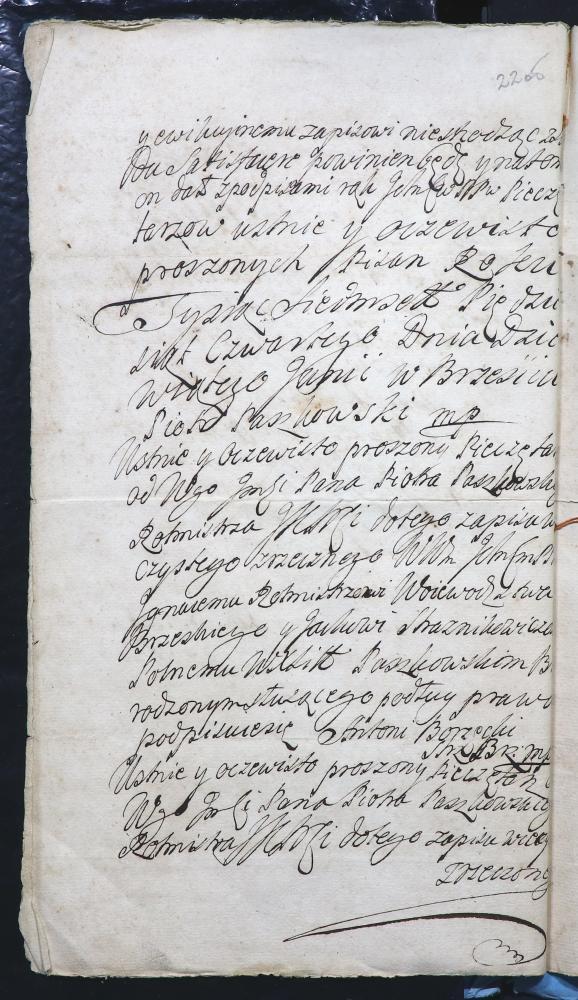 2266
y ewikcyinemu zapisowi nieszkodząc za
Du Satisfakcyę powinien będę y na tem
m dał z podpisami rąk Ichmć PPw Piecz
tarzow ustnie y oczewisto
proszonych Pisan Roku
Tysiąc Siedmset Piędzie
siąt Czwartego Dnia Dzie
wiątego Junii w Brześciu
Piotr Paszkowski mp
Ustnie y oczewisto proszony Pieczęta
od Wgo Jmći Pana Piotra Paszkowski
Rotmistrza do tego zapisu w
czystego zrzecznego WWm
Ignacemu Rotmistrzowi Woiewodztwa
Brzeskiego y Jackowi Straznikowicza
Polnemu Paszkowskim B
rodzonym służącego podług prawa
podpisuię się Antoni Borzęcki
mp
Ustnie y oczewisto proszony Pieczętarz
Wgo Jmći Pana Piotra Paszkowskieg
Rotmistrza do tego zapisu wiecz
zrzeczone